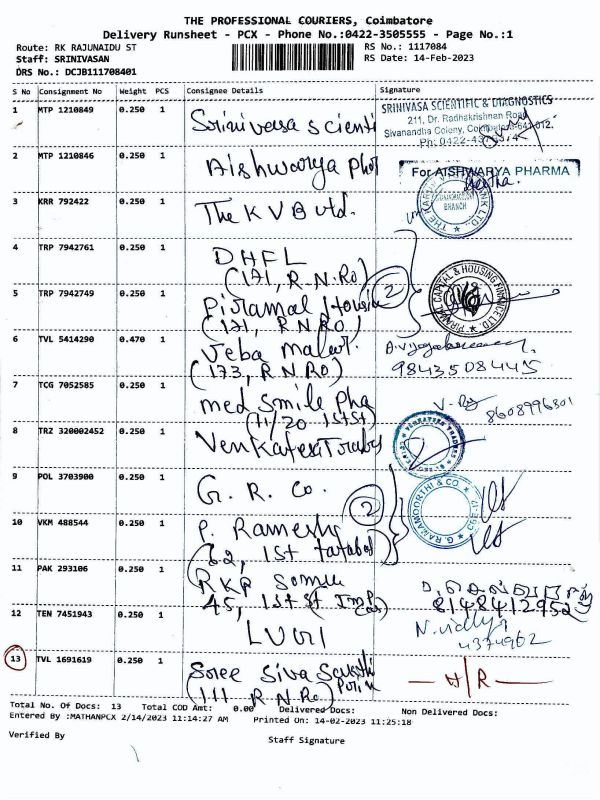 THE PROFESSIONAL COURIERS, Coimbatore
Delivery Runsheet - PCX - Phone No.:0422-3505555 - Page No.:1
Route: RK RAJUNAIDU ST
RS No.: 1117084
Staff: SRINIVASAN
RS Date: 14-Feb-2023
DRS No.: DCJB111708401
S No Consignment No Weight PCS Consignee Details Signature
1 MTP 1210849 0.250 1 Srinivasa Scienti
SRINIVASA SCIENTIFIC & DIAGNOSTICS
211, Dr. Radhakrishnan Road
Sivanandha Colony, Coimbatore-641 012.
2 MTP 1210846 0.250 1 Aishwarya Phar
For AISHWARYA PHARMA
3 KRR 792422 0.250 1 The K V B Ltd.
BRANCH
4 TRP 7942761 0.250 1 DHFL
(171, R.N.Ro)
5 TRP 7942749 0.250 1 Piramal Housin
(171, R N RO)
2
PIRAMAL CAPITAL & HOUSING FINANCE LTD.
6 TVL 5414290 0.470 1 Jeba Malar.
(173, R N RO)
98435 08445
7 TCG 7052585 0.250 1 med Smile Pha
(11/20 1st St)
8608996301
8 TRZ 320002452 0.250 1
9 POL 3703900 0.250 1 G. R. Co.
G. RAMAMOORTHI & CO
2
10 VKM 488544 0.250 1 P. Ramesh
11 PAK 293106 0.250 1 RKP
45, 1st St
8148412952
12 TEN 7451943 0.250 1
N. vidhya
4374962
13 TVL 1691619 0.250 1 Sree Siva Sakthi
(111 R N Ro)
H/R
Total No. Of Docs: 13 Total COD Amt: 0.00 Delivered Docs: Non Delivered Docs:
Entered By :MATHANPCX 2/14/2023 11:14:27 AM Printed On: 14-02-2023 11:25:18
Verified By
Staff Signature